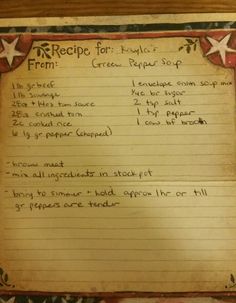 Recipe for: Kayla's
From: Green Pepper Soup
1 lb gr beef
1 lb sausage
tom sauce
28oz crushed tom
2c cooked rice
6 lg gr pepper (chopped)
1 envelope onion soup mix
1/4c br sugar
2 tsp salt
1 tsp pepper
1 bf broth
- brown meat
- mix all ingredients in stock pot
- bring to simmer + hold approx 1hr or till
gr peppers are tender